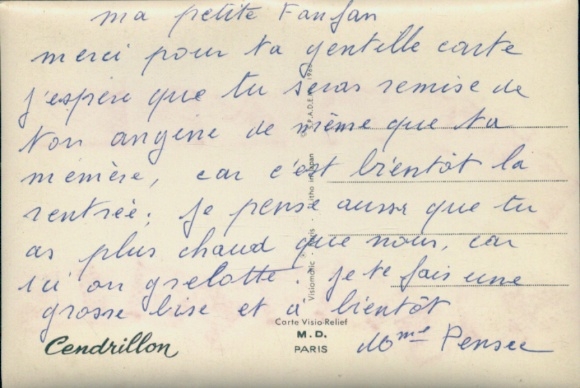 ma petite Fanfan
merci pour ta gentille carte
j'espère que tu seras remise de
ton angine de même que ta
mémère, car c'est bientôt la
rentrée; je pense aussi que tu
as plus chaud que nous, car
ici on grelotte. je te fais une
grosse bise et a bientôt
Mme Pensec
Cendrillon
Carte Visio-Relief
M.D.
PARIS
Visiomatic - Paris -